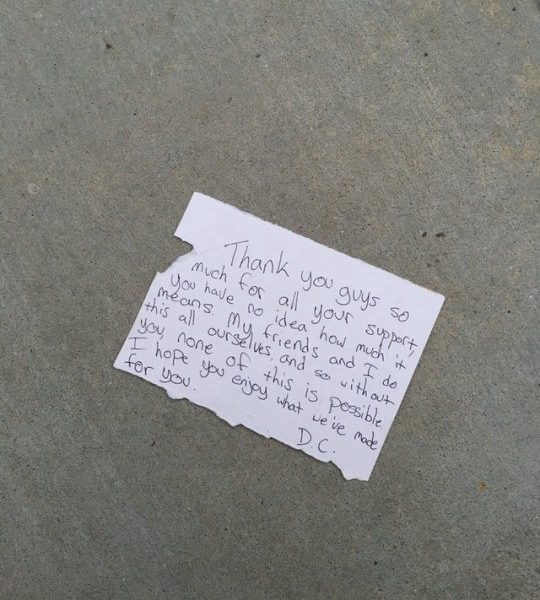 Thank you guys so
much for all your support,
you have no idea how much it
means. My friends and I do
this all ourselves, and so without
you, none of this is possible.
I hope you enjoy what we've made
for you.
D.C.